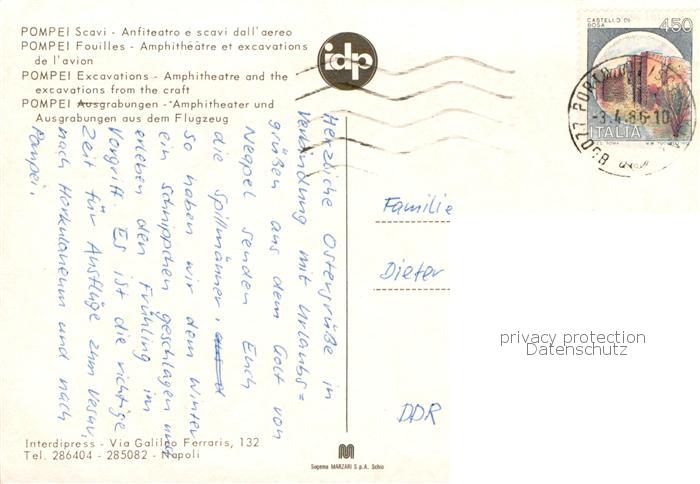 POMPEI Scavi - Anfiteatro e scavi dall'aereo
POMPEI Fouilles - Amphithéâtre et excavations
de l'avion
POMPEI Excavations - Amphitheatre and the
excavations from the craft
POMPEI Ausgrabungen - Amphitheater und
Ausgrabungen aus dem Flugzeug
idp
CASTELLO DI
BOSA
450
-3.4.86-10
ITALIA
80077
Herzliche Ostergrüße in
Verbindung mit Urlaubs=
grüßen aus dem Golf von
Neapel senden Euch
die Spillmänner.
So haben wir dem Winter
ein Schnippchen geschlagen und
erleben den Frühling im
Vorgriff. Es ist die richtige
Zeit für Ausflüge zum Vesuv,
nach Herkulaneum und nach
Pompei.
Familie
Dieter
DDR
privacy protection
Datenschutz
Interdipress - Via Galileo Ferraris, 132
Tel. 286404 - 285082 - Napoli
Sogema MARZARI S.p.A. Schio